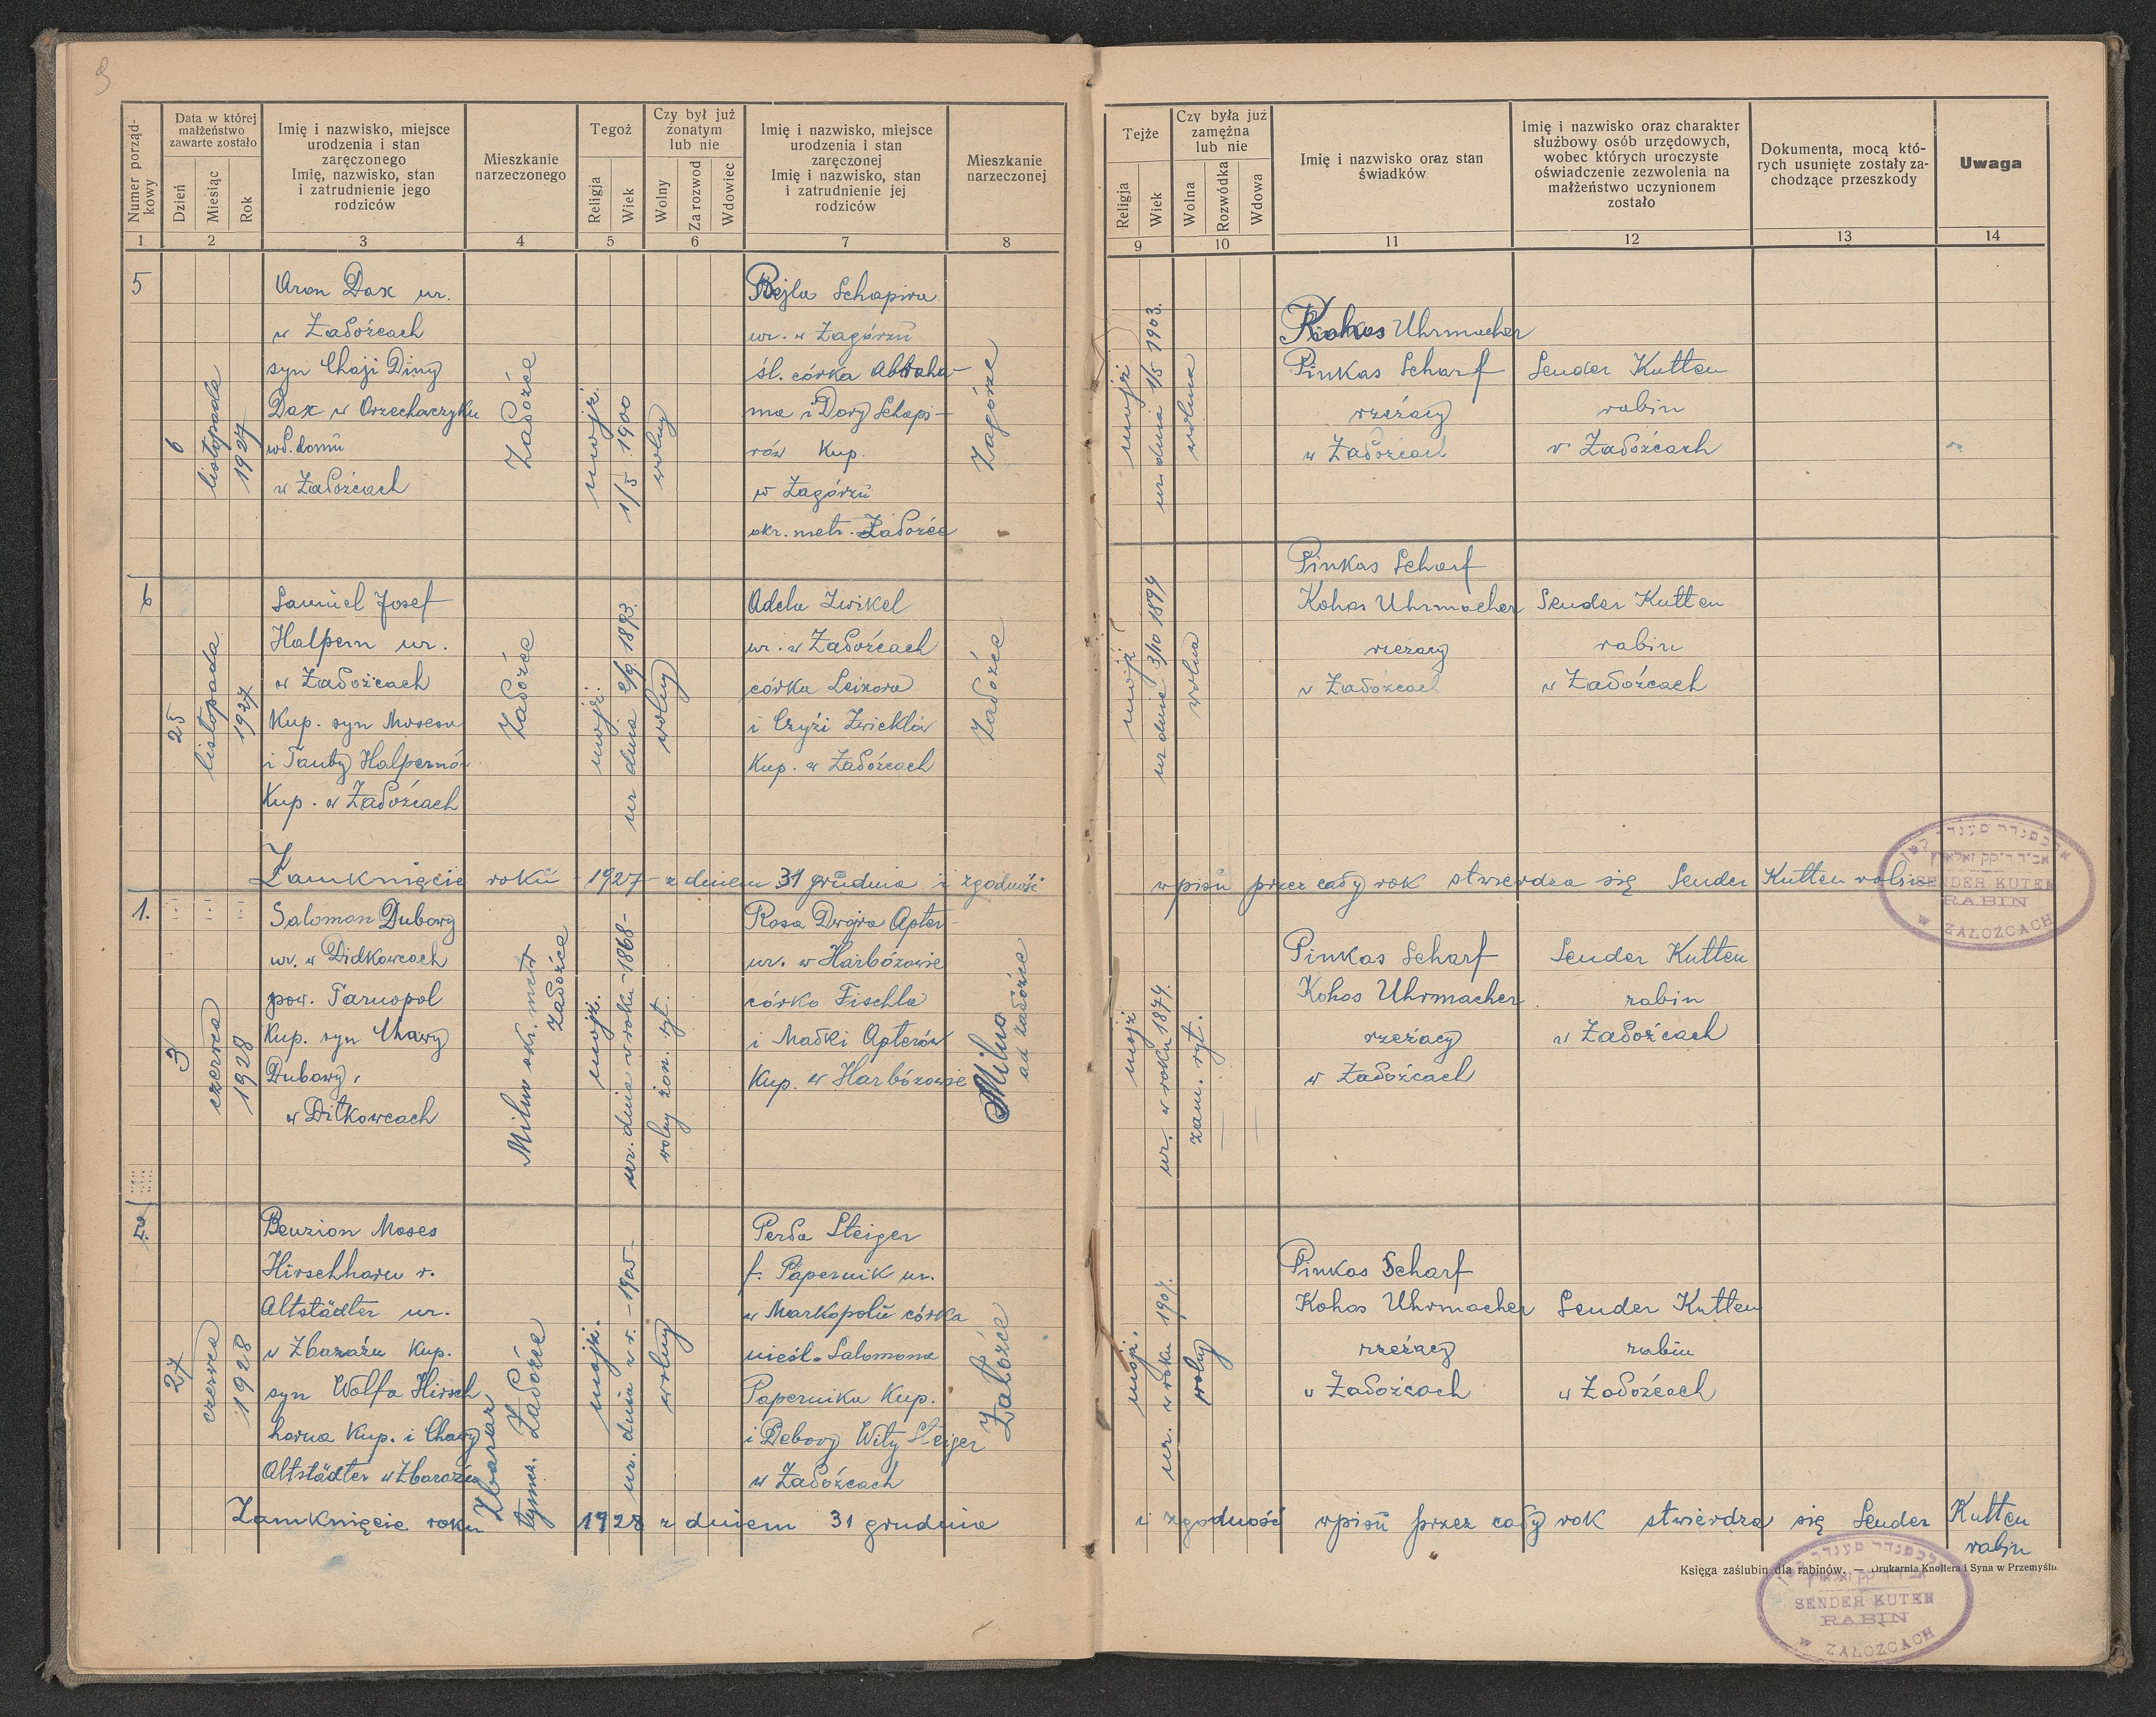 9
Numer porząd-
kowy
Data w której
małżeństwo
zawarte zostało
Dzień
Miesiąc
Rok
Imię i nazwisko, miejsce
urodzenia i stan
zaręczonego
Imię, nazwisko, stan
i zatrudnienie jego
rodziców
Mieszkanie
narzeczonego
Tegoż
Religja
Wiek
Czy był już
żonatym
lub nie
Wolny
Za rozwod
Wdowiec
Imię i nazwisko, miejsce
urodzenia i stan
zaręczonej
Imię i nazwisko, stan
i zatrudnienie jej
rodziców
Mieszkanie
narzeczonej
Tejże
Religja
Wiek
Czy była już
zamężna
lub nie
Wolna
Rozwódka
Wdowa
Imię i nazwisko oraz stan
świadków
Imię i nazwisko oraz charakter
służbowy osób urzędowych,
wobec których uroczyste
oświadczenie zezwolenia na
małżeństwo uczynionem
zostało
Dokumenta, mocą któ-
rych usunięte zostały za-
chodzące przeszkody
Uwaga
1 2 3 4 5 6 7 8 9 10 11 12 13 14
5
6
listopada
1927
Aron Dax ur.
w Załoźcach
syn Chaji Diny
Dax w Orzechowczyku
wł. domu
w Załoźcach
Załoźce
mojż.
1/5 1900
wolny
Bejla Schapira
ur. w Zagórzu
śl. córka Abraha-
ma i Dory Schapi-
rów Kup.
w Zagórzu
okr. metr. Załoźce
Zagórze
mojż
ur dnia 1/5 1903.
wolna
Kohos Uhrmacher
Pinkas Scharf
rzeżacy
w Załoźcach
Sender Kutten
rabin
w Załoźcach
6
25
listopada
1927
Samuel Josef
Halpern ur.
w Załoźcach
Kup. syn Mosesa
i Tauby Halpernó
Kup. w Załoźcach
Załoźce
mojż.
ur dnia 2/9 1893.
wolny
Adela Zwikel
ur. w Załoźcach
córka Leizora
i Czyżi Zwicklów
Kup. w Załoźcach
Załoźce
mojż
ur dnia 3/10 1899
wolna
Pinkas Scharf
Kohos Uhrmacher
rzeżacy
w Załoźcach
Sender Kutten
rabin
w Załoźcach
Zamknięcie roku 1927 z dniem 31 grudnia i zgodność wpisu przez cały rok stwierdza się Sender Kutten rabin
SENDER KUTEN
RABIN
W ZAŁOŹCACH
1.
3
czerwca
1928
Salomon Dubowy
ur. w Didkowcach
pow. Tarnopol
Kup. syn Chawy
Dubowy,
w Ditkowcach
Milno okr. metr
Załoźce
mojż.
ur. dnia w roku 1868
wolny żon. ryt.
Rosa Dwojra Apter
ur. w Harbózowie
córka Fischla
i Małki Apterów
Kup. w Harbózowie
Milno
ad Załoźce
mojż
ur. w roku 1874.
zam. ryt.
Pinkas Scharf
Kohos Uhrmacher
rzeżacy
w Załoźcach
Sender Kutten
rabin
w Załoźcach
2.
27
czerwca
1928
Benzion Moses
Hirschhorn r.
Altstädter ur.
w Zbarażu Kup.
syn Wolfa Hirsch
horna Kup. i Chawy
Altstädter w Zbarażu
Zbaraż
tymcz. Załoźce
mojż.
ur. dnia w r. 1905
wolny
Perła Steiger
f. Papernik ur.
w Markopolu córka
nieśl. Salomona
Papernika Kup.
i Debory Wity Steiger
w Załoźcach
Załoźce
mojż.
ur. w roku 1907.
wolny
Pinkas Scharf
Kohos Uhrmacher
rzeżacy
w Załoźcach
Sender Kutten
rabin
w Załoźcach
Zamknięcie roku 1928 z dniem 31 grudnia i zgodność wpisu przez cały rok stwierdza się Sender Kutten
rabin
Księga zaślubin dla rabinów. — Drukarnia Knollera i Syna w Przemyślu
SENDER KUTEN
RABIN
W ZAŁOŹCACH